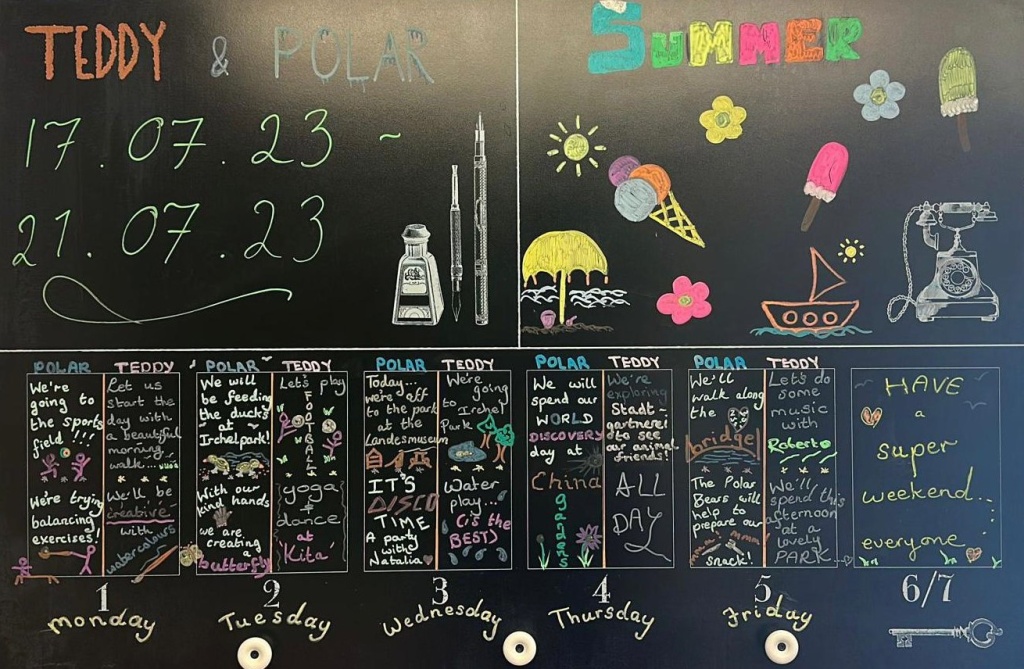 TEDDY & POLAR
17.07.23 -
21.07.23
SUMMER
POLAR
We're
going to
the sports
field !!!
We're trying
balancing
exercises!
TEDDY
Let us
start the
day with
a beautiful
morning
walk...
We'll be
creative
with
watercolours
1
Monday
POLAR
We will
be feeding
the ducks
at
Irchelpark!
With our
kind hands
we are
creating
a
butterfly
TEDDY
Let's play
FOOTBALL
yoga
+
dance
at
'Kita'
2
Tuesday
POLAR
Today...
we're off
to the park
at the
Landesmuseum
IT'S
DISCO
TIME
A party
with
Natalia
TEDDY
We're going
to Irchel
Park
Water
play...
(it's the
BEST)
3
Wednesday
POLAR
We will
spend our
WORLD
DISCOVERY
day at
China
gardens
TEDDY
We're
exploring
Stadt-
gärtnerei
to see
our animal
friends!
ALL
DAY
4
Thursday
POLAR
We'll
walk along
the
bridge!
The Polar
Bears will
help to
prepare our
snack!
TEDDY
Let's do
some
music
with
Roberto
We'll
spend this
afternoon
at a
lovely
PARK
5
Friday
HAVE
a
super
weekend...
everyone
6/7